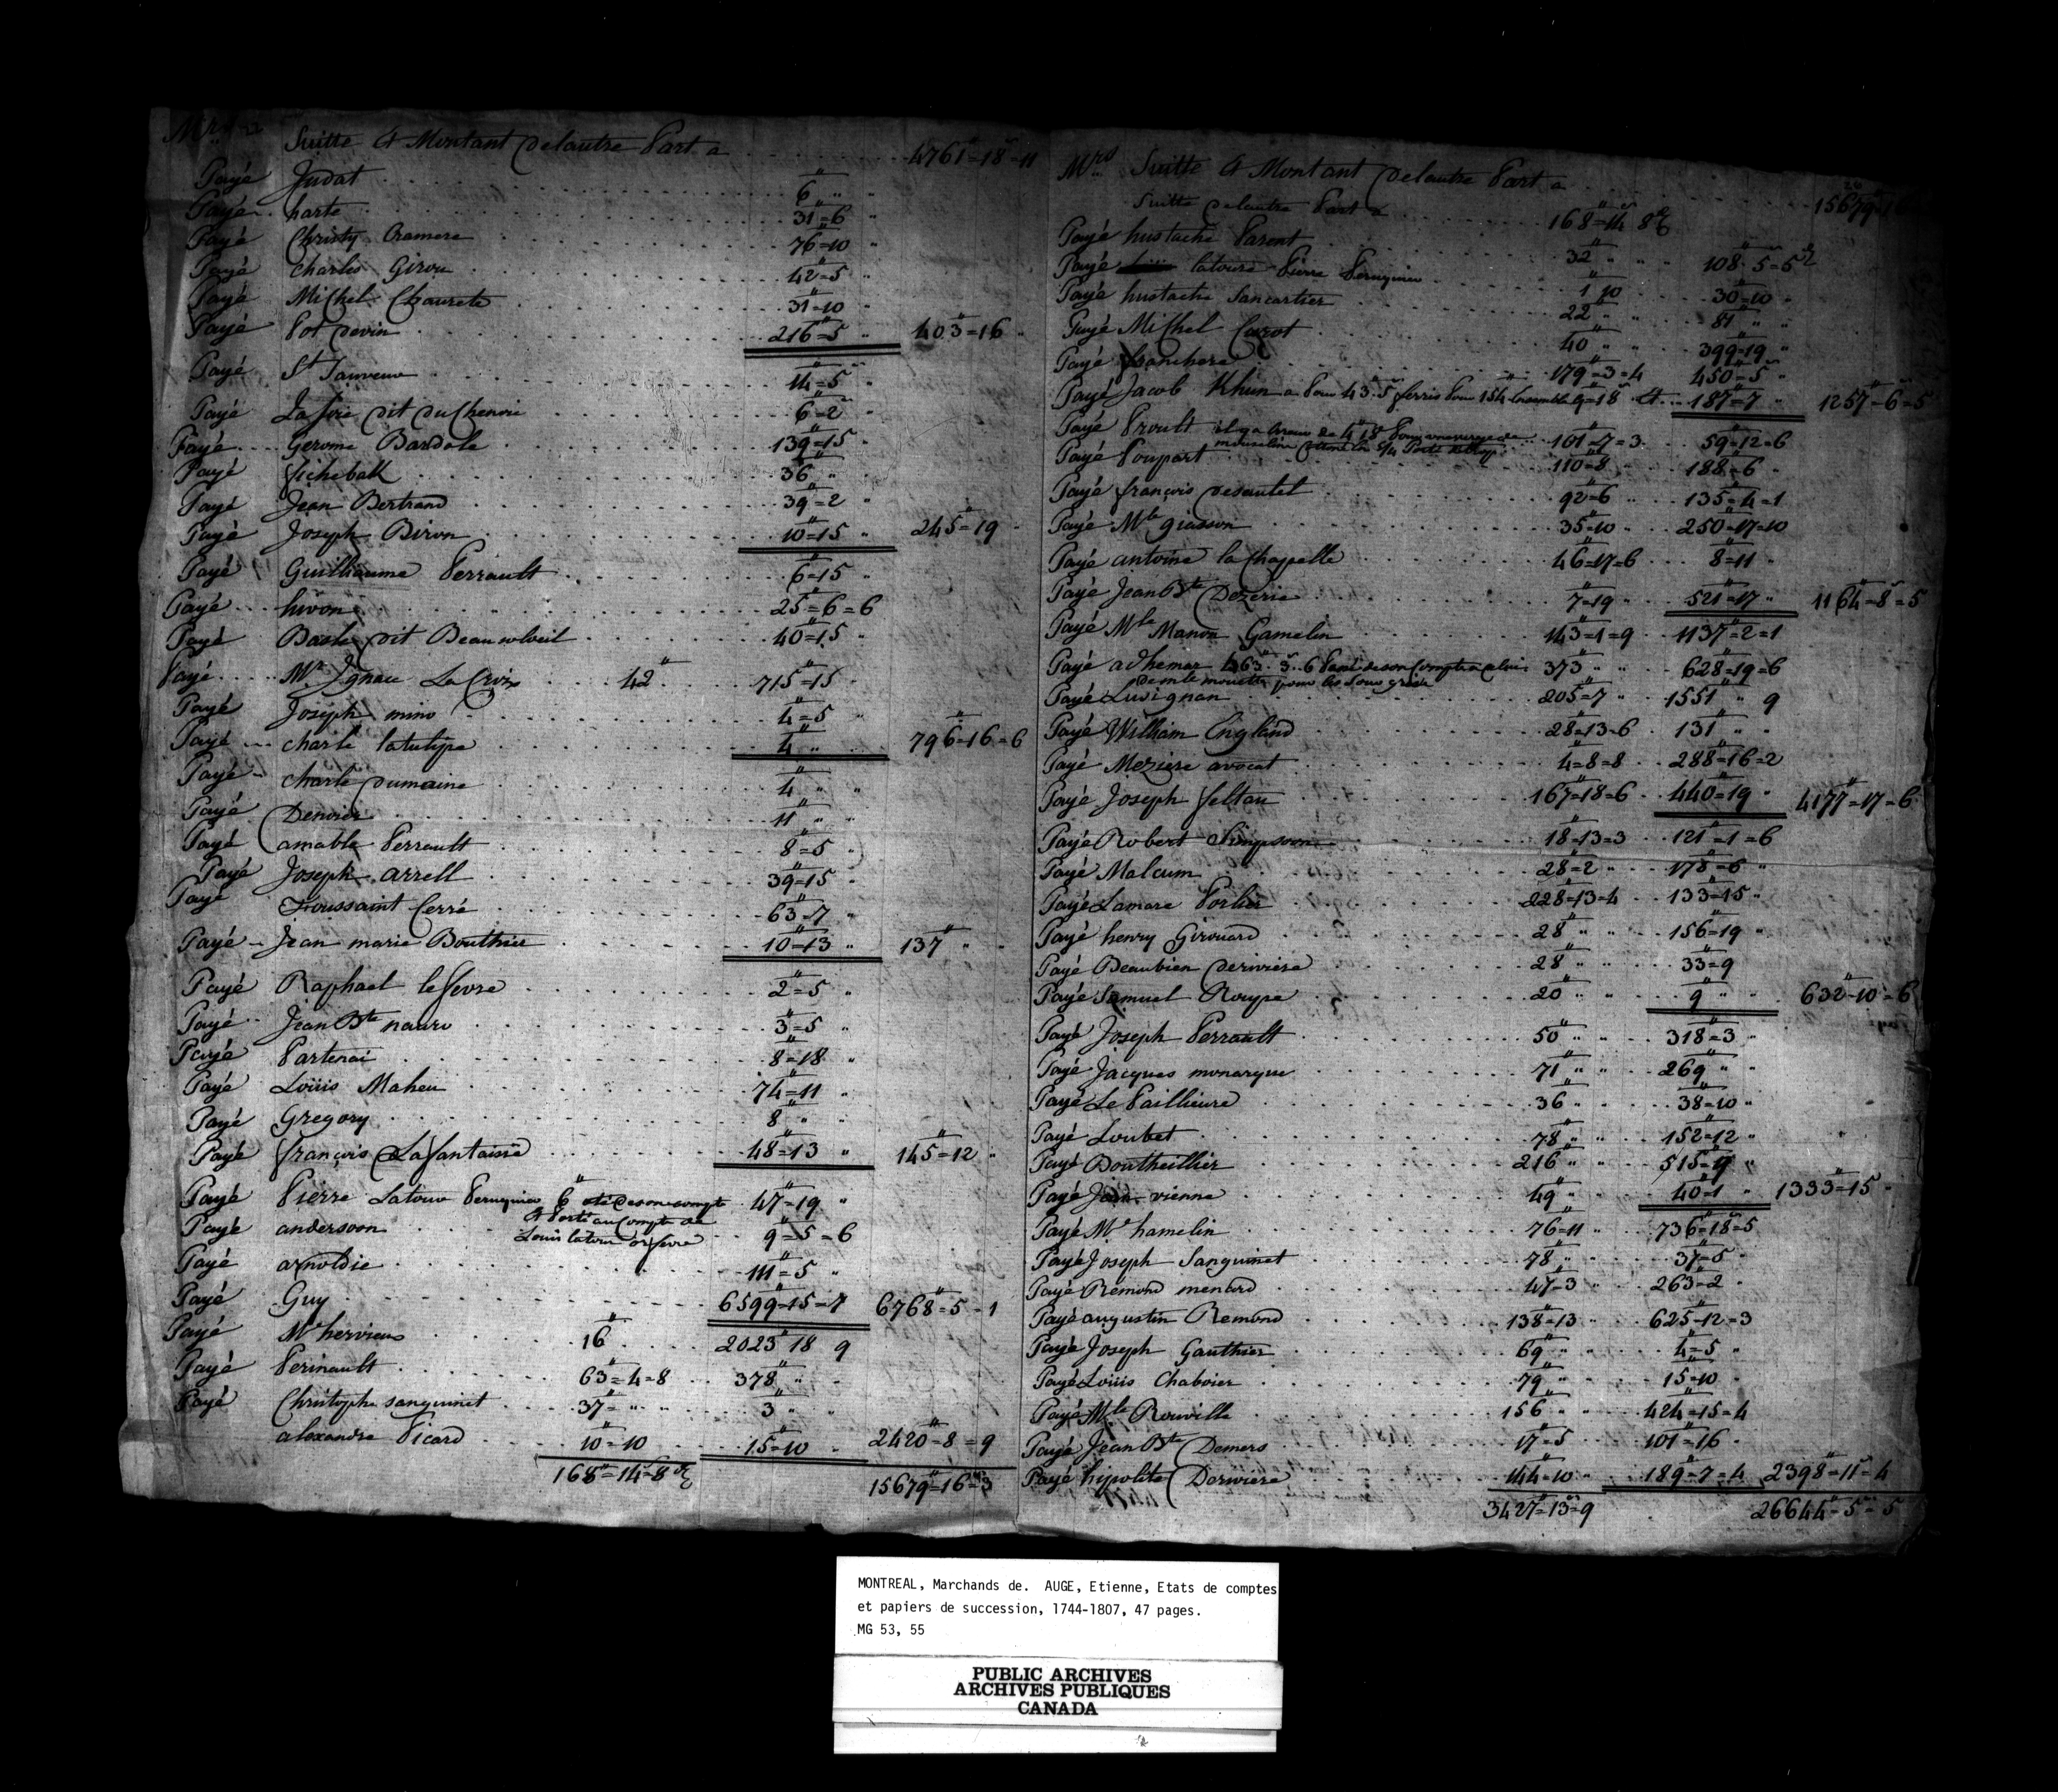 Mrs Suitte & Montant de lautre Part a 4761"=18=11
Payé Judat 6" "
Payé harte 31"=6 "
Payé Christy Cramere 76"=10 "
Payé Charles Girou 42"=5 "
Payé Michel Chaurete 31"=10
Payé Pot devin 216"=5 " 403"=16 "
Payé St Sauveur 14"=5 "
Payé La foie dit du Chenie 6"=2 "
Payé Gerome Bardole 139"=15 "
Payé ficheball 36" "
Payé Jean Bertrand 39"=2 "
Payé Joseph Biron 10"=15 " 245"=19
Payé Guilliaume Perrault 6"=15 "
Payé hivon 25"=6=6
Payé Basle dit Beausoleil 40"=15 "
Payé Mr Ignace La Croix 42" 715"=15 "
Payé Joseph mino 4"=5 "
Payé charle latulipe 4" " 796"=16=6
Payé charle dumaine 4" "
Payé Denoier 11" "
Payé amable Perrault 8"=5 "
Payé Joseph arrell 39"=15 "
Payé Toussaint Cerré 63"=7 "
Payé Jean marie Bouthier 10"=13 " 137" "
Payé Raphael lefevre 2"=5 "
Payé Jean Bte naaro 3"=5 "
Payé Partenai 8"=18 "
Payé Loüis Maheu 74"=11 "
Payé Gregory 8" "
Payé françois Lafantaisie 48"=13 " 145"=12 "
Payé Pierre Latour Peruquier 6" oté de son compte 47"=19 "
& Porté au Compte de
Payé andersoon 9"=5=6
Louis latour orfevre
Payé arnoldie 111"=5 "
Payé Guy 6599"=15=7 6768"=5=1
Payé Mr hervieux 16" 2023"18 9
Payé Perinault 63"=4=8 378" "
Payé Christophe sanguinet 37"= " " 3" "
alexandre Picard 10"=10 15"=10 2420"=8=9
168"=14=8 15679"=16=3
Mrs Suitte & Montant de lautre Part a 15679"=16
Suitte de lautre Part a 168"=14 8
Payé hustache Parent 32" " " 108"5=5
Payé latoure Pierre Peruquier 1"10 30"=10 "
Payé hustache Lancartier 22" " 81" "
Payé Michel Curot 40" " 399"=19 "
Payé franchere 179"=3=4 450"=5 "
Payé Jacob Khun a Pour 43"5 ferris Pour 154 Ensemble 9"=18 & 187"=7 " 1257"=6=5
Payé Proult il y a Erreur de 4"18 Pour une verge de 101"=7=3 59"=12=6
mouseline
Payé Poupart 110"=8 188"=6 "
Payé françois desautel 92"=6 " 135"=4=1
Payé Mle giasson 35"=10 250"=17=10
Payé antoine la Chappelle 46"=17=6 8"=11 "
Payé Jean Bte Dezerie 7"=19 " 521"=17 " 1164"=8=5
Payé Mle Manon Gamelin 143"=1=9 1137"=2=1
Payé adhemar 463" 3 6 Passé de son Compte a celui 373" " " 628"=19=6
Payé Luvignan 205"=7 " 1551" " 9
Payé William England 28"=13=6 131" " "
Payé Meziere avocat 4"=8=8 288"=16=2
Payé Joseph feltau 167"=18=6 440"=19 " 4177"=17=6
Payé Robert Simpsoon 18"=13=3 121"=1=6
Payé Malcum 28"=2 " 178"=6 "
Payé Lamare Porlier 228"=13=4 133"=15 "
Payé henry Girouard 28" " " 156"=19 "
Payé Beaubien deriviere 28" " " 33"=9
Payé Samuel Roupe 20" " " 9" " " 632"=10=6
Payé Joseph Perrault 50" " " 318"=3 "
Payé Jacques monarque 71" " " 269" " "
Payé Le Paillieure 36" " 38"=10 "
Payé Loubet 78" " " 152"=12 "
Payé Boutheillier 216" " " 515"=9 "
Payé Jean vienne 49" " 40"=1 " 1333"=15 "
Payé Mr hamelin 76"=11 " 736"=18=5
Payé Joseph Sanguinet 78" " 37"=5 "
Payé Rémond menard 47"=3 " 263"=2 "
Payé augustin Remond 138"=13 625"=12=3
Payé Joseph Gauthier 69" " " 4"=5 "
Payé Loüis Chaboier 79" " 15"=10 "
Payé Mle Rouville 156" " " 424"=15=4
Payé Jean Bte Demers 17"=5 101"=16 "
Payé hipolite Derivierre 144"=10 " 189"=7=4 2398"=11=4
3427"=13=9 26644"=5=5
MONTREAL, Marchands de. AUGE, Etienne, Etats de comptes
et papiers de succession, 1744-1807, 47 pages.
MG 53, 55
PUBLIC ARCHIVES
ARCHIVES PUBLIQUES
CANADA